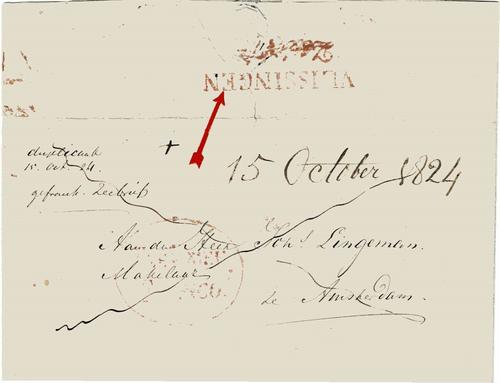 VLISSINGEN
15 October 1824
duplicaat
15. Oct. 24.
gefrank. Zeebrief
Aan den Heer Joh.s Lingeman.
Makelaar
te Amsterdam.